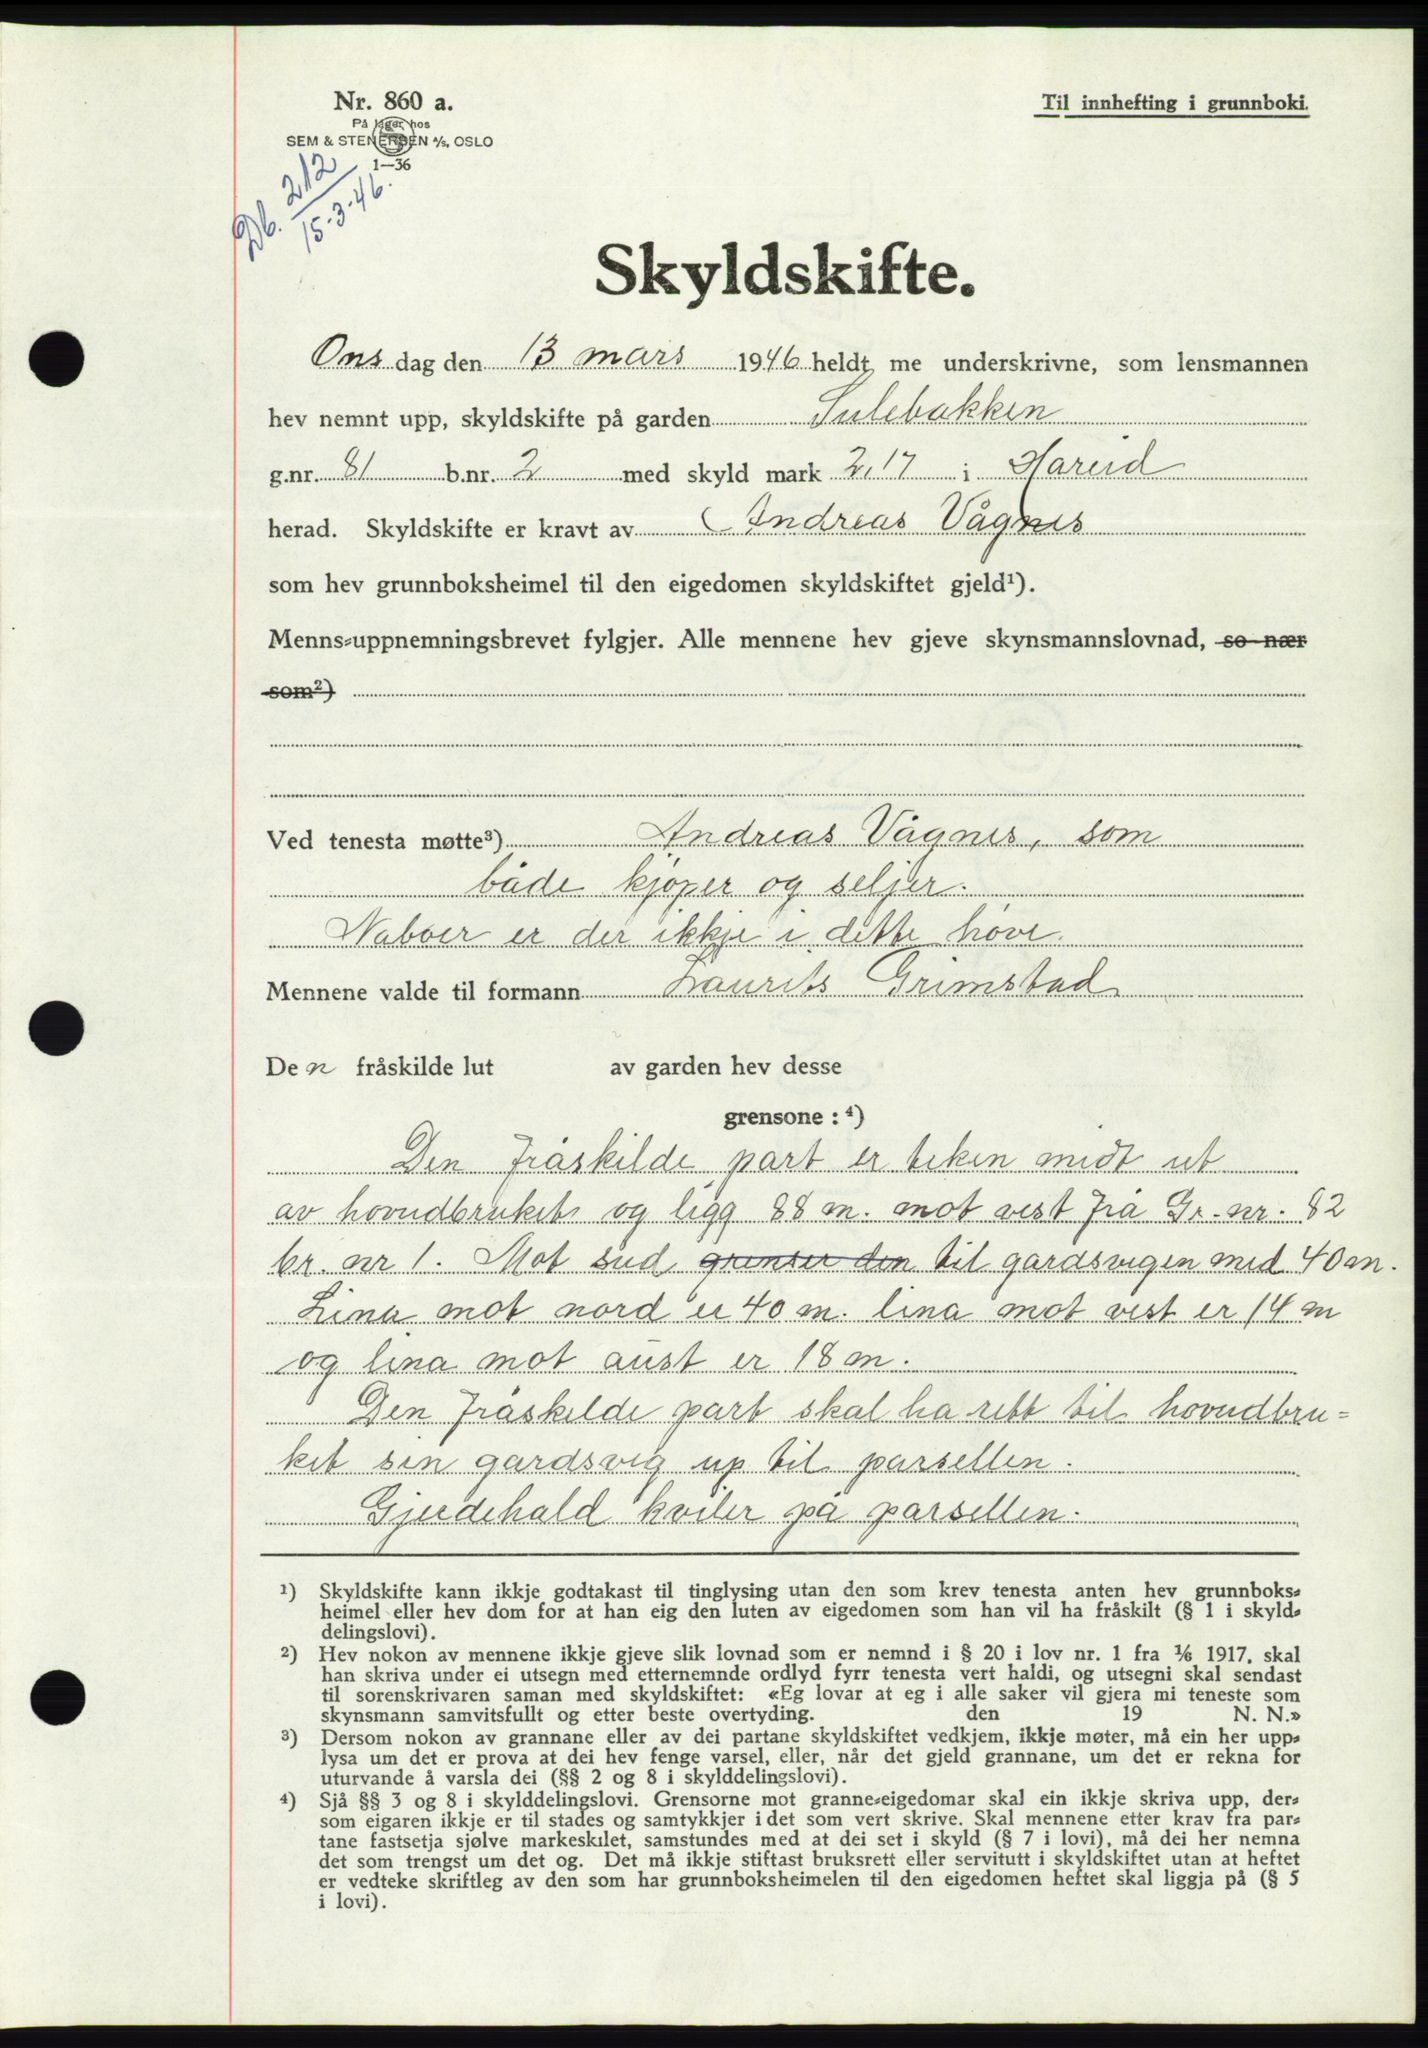 Nr. 860 a.
På lager hos
SEM & STENERSEN A/S, OSLO
1—36
Til innhefting i grunnboki.
Db. 212
15-3-46.
Skyldskifte.
Ons dag den 13 mars 1946 heldt me underskrivne, som lensmannen
hev nemnt upp, skyldskifte på garden Sulebakken
g.nr. 81 b.nr. 2 med skyld mark 2,17 i Hareid
herad. Skyldskifte er kravt av Andreas Vågnes
som hev grunnboksheimel til den eigedomen skyldskiftet gjeld¹).
Menns-uppnemningsbrevet fylgjer. Alle mennene hev gjeve skynsmannslovnad, so nær
som²)
Ved tenesta møtte³) Andreas Vågnes, som
både kjøper og seljer.
Naboer er der ikkje i dette høve.
Mennene valde til formann Laurits Grimstad
Den fråskilde lut av garden hev desse
grensone : ⁴)
Den fråskilde part er teken midt ut
av hovudbruket og ligg 88 m. mot vest frå Gr. nr. 82
br. nr 1. Mot sud grenser den til gardsvegen med 40 m.
Lina mot nord er 40 m. lina mot vest er 14 m
og lina mot aust er 18 m.
Den fråskilde part skal ha rett til hovudbru=
ket sin gardsveg up til parsellen.
Gjerdehald kviler på parsellen.
¹) Skyldskifte kann ikkje godtakast til tinglysing utan den som krev tenesta anten hev grunnboks-
heimel eller hev dom for at han eig den luten av eigedomen som han vil ha fråskilt (§ 1 i skyld-
delingslovi).
²) Hev nokon av mennene ikkje gjeve slik lovnad som er nemnd i § 20 i lov nr. 1 fra 1/6 1917, skal
han skriva under ei utsegn med etternemnde ordlyd fyrr tenesta vert haldi, og utsegni skal sendast
til sorenskrivaren saman med skyldskiftet: «Eg lovar at eg i alle saker vil gjera mi teneste som
skynsmann samvitsfullt og etter beste overtyding. den 19 N. N.»
³) Dersom nokon av grannane eller av dei partane skyldskiftet vedkjem, ikkje møter, må ein her upp-
lysa um det er prova at dei hev fenge varsel, eller, når det gjeld grannane, um det er rekna for
uturvande å varsla dei (§§ 2 og 8 i skylddelingslovi).
⁴) Sjå §§ 3 og 8 i skylddelingslovi. Grensorne mot granne-eigedomar skal ein ikkje skriva upp, der-
som eigaren ikkje er til stades og samtykkjer i det som vert skrive. Skal mennene etter krav fra par-
tane fastsetja sjølve markeskilet, samstundes med at dei set i skyld (§ 7 i lovi), må dei her nemna
det som trengst um det og. Det må ikkje stiftast bruksrett eller servitutt i skyldskiftet utan at heftet
er vedteke skriftleg av den som har grunnboksheimelen til den eigedomen heftet skal liggja på (§ 5
i lovi).